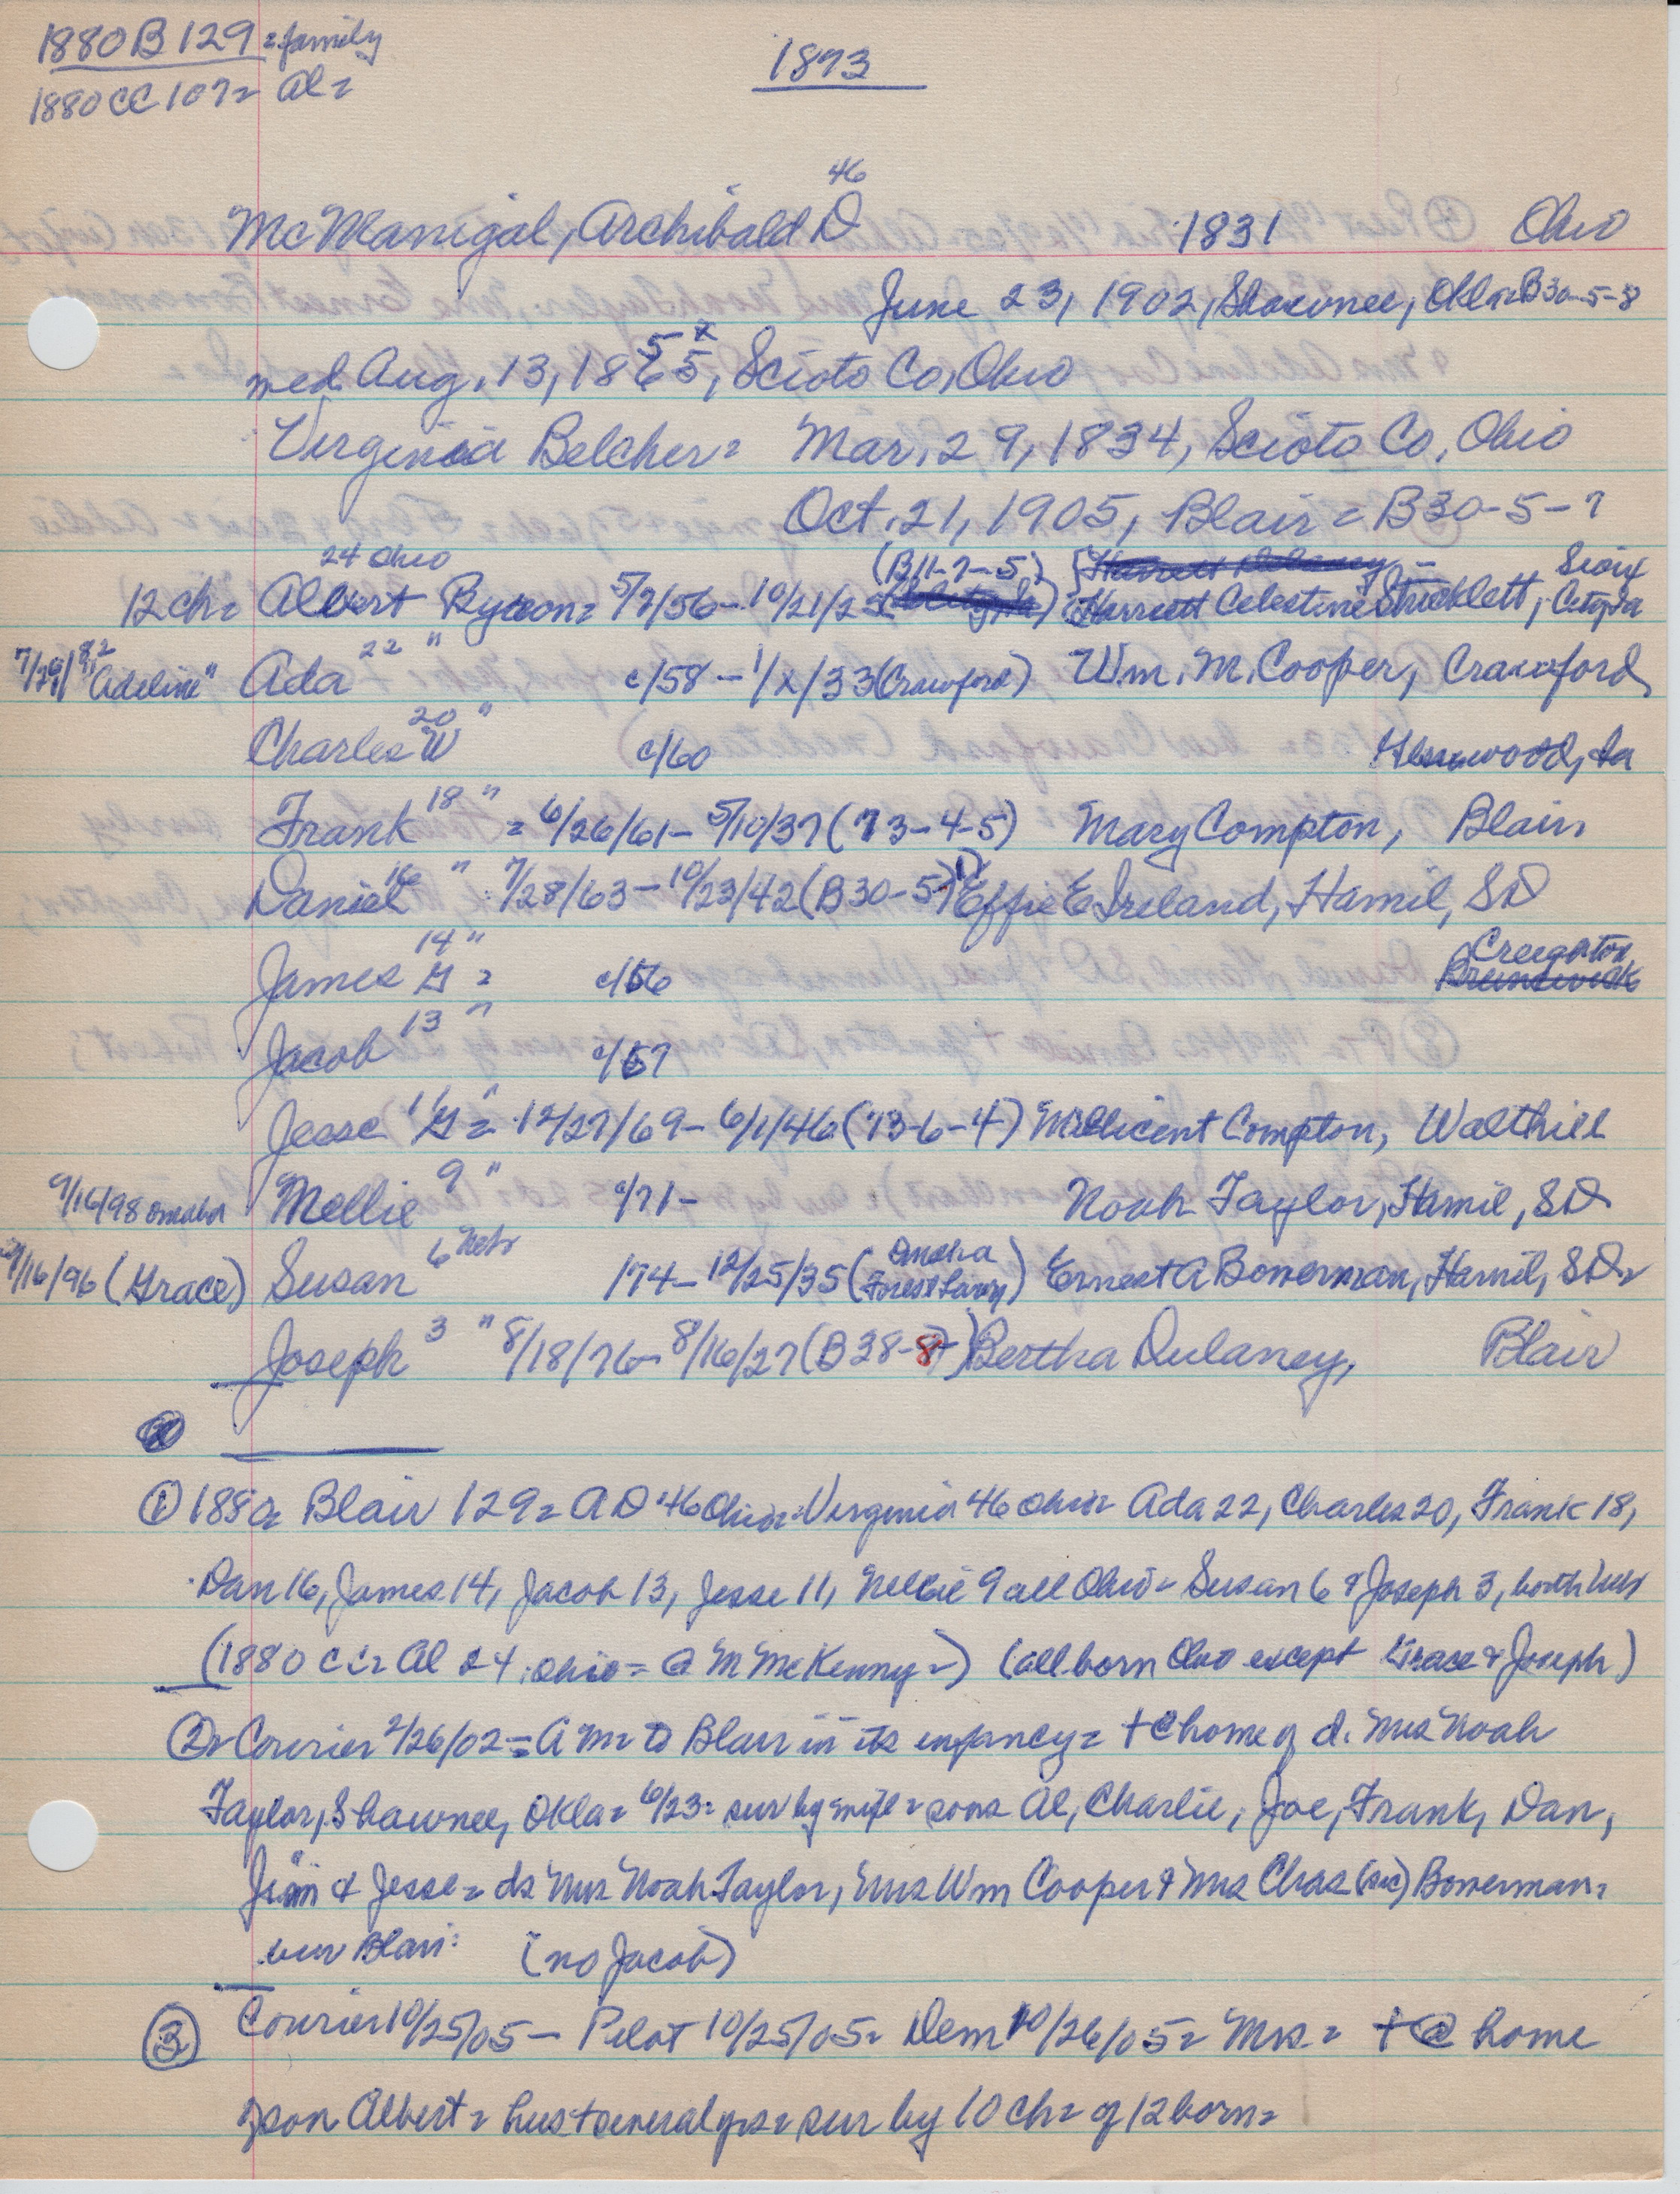 1880 B 129 = family
1880 CC 107 = Al =
1873
46
McManigal, Archibald D 1831 Ohio
June 23, 1902, Shawnee, Okla = B30-5-8
med. Aug. 13, 1855, Scioto Co, Ohio
Virginia Belcher = Mar. 29, 1834, Scioto Co, Ohio
Oct. 21, 1905, Blair = B30-5-7
24 Ohio (B11-7-5) Sioux
12 ch = Albert Byron = 5/7/56 - 10/21/2 Harriett Celestine Stricklett, City, Ia
7/29/82 "Adeline" Ada 22 " c/58 - 1/2/33 (Crawford) Wm. M. Cooper, Crawford
Charles W 20 " c/60 Glenwood, Ia
Frank 18 " = 6/26/61 - 5/10/37 (73-4-5) Mary Compton, Blair
Daniel 16 " 7/28/63 - 10/23/42 (B30-5-1) Effie E Ireland, Hamil, SD
James G 14 " = c/66 Creighton
Jacob 13 " c/67
Jesse G 11 " = 12/27/69 - 6/1/46 (73-6-4) Millicent Compton, Walthill
9/16/98 Omaha Mellie 9 " c/71 - Noah Taylor, Hamil, SD
9/16/96 (Grace) Susan 6 Nebr /74 - 12/25/35 (Omaha Forest Lawn) Ernest A Bowerman, Hamil, SD
Joseph 3 " 8/18/76 - 8/16/27 (B38-8-) Bertha Dulaney, Blair
① 1880 = Blair 129 = AD 46 Ohio = Virginia 46 Ohio = Ada 22, Charles 20, Frank 18,
Dan 16, James 14, Jacob 13, Jesse 11, Nellie 9 all Ohio = Susan 6 & Joseph 3, both Nebr
(1880 CC = Al 24 Ohio = @ M McKenny =) (all born Ohio except Grace & Joseph)
② Courier 2/26/02 = A M = to Blair in its infancy = + @ home of d. Mrs Noah
Taylor, Shawnee, Okla = 6/23 = sur by wife = sons Al, Charlie, Joe, Frank, Dan,
Jim & Jesse = ds Mrs Noah Taylor, Mrs Wm Cooper & Mrs Chas (sic) Bowerman =
bur Blair: (no Jacob)
③ Courier 10/25/05 - Pilot 10/25/05 = Dem 10/26/05 = Mrs = + @ home
of son Albert = hus + several yrs = sur by 10 ch = of 12 born =